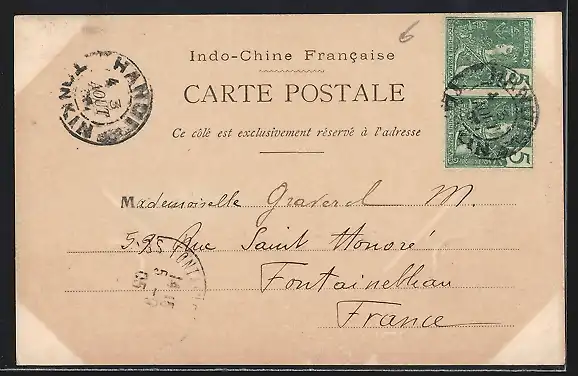 6
Indo-Chine Française
CARTE POSTALE
Ce côté est exclusivement réservé à l'adresse
HANOI
TONKIN
4
3
AOUT
5
5
Mademoiselle Graverel M.
Rue Saint Honoré
Fontainebleau
France
14 15
5-9
05